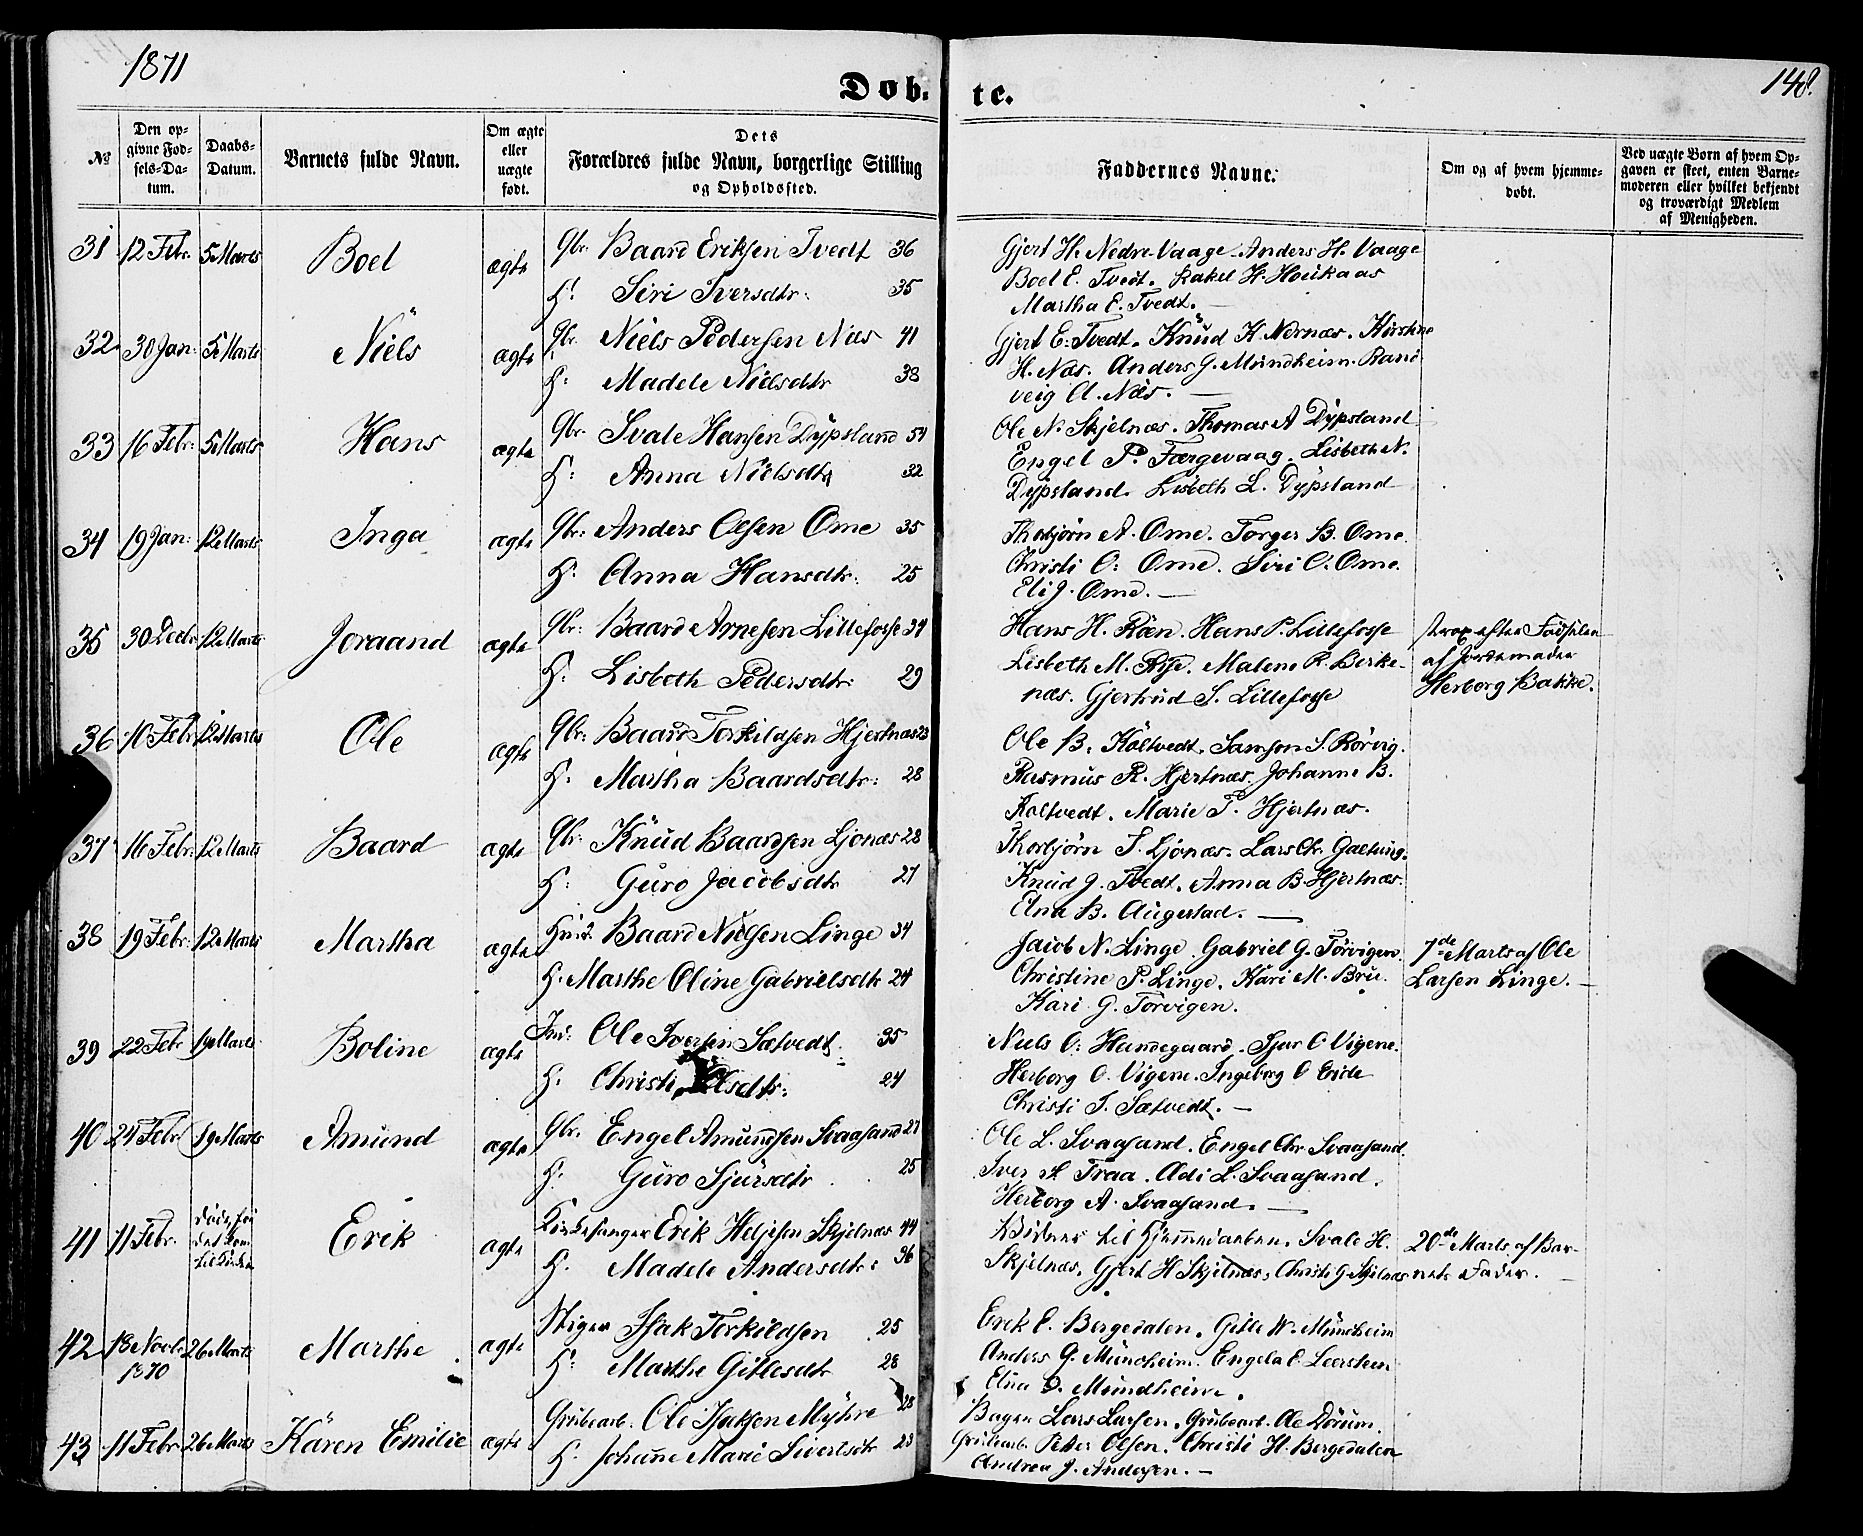 1871
148.
Døb. te.
№
Den op-
givne Fød-
sels-Da-
tum.
Daabs-
Datum.
Barnets fulde Navn.
Om ægte
eller
uægte
født.
Dets
Forældres fulde Navn, borgerlige Stilling
og Opholdssted.
Faddernes Navne.
Om og af hvem hjemme-
døbt.
Ved uægte Børn af hvem Op-
gaven er skeet, enten Barne-
moderen eller hvilket bekjendt
og troværdigt Medlem
af Menigheden.
31 12 Febr. 5 Marts Boel ægte Gbr. Baard Eriksen Tvedt 36
H: Siri Iversdtr: 35
Gjert H. Nedre-Vaage. Anders H. Vaage
Boel E. Tvedt. Rakel H. Hovkaas
Martha E. Tvedt. —
32 30 Jan: 5 Marts Niels ægte Gbr. Niels Pedersen Næs 41
H: Madele Nielsdtr 38
Gjert E. Tvedt. Knud K. Nernæs. Kirstine
H. Næs. Anders G. Mundheim. Ran-
veig A. Næs. —
33 16 Febr. 5 Marts Hans ægte Gbr. Svale Hansen Dypsland 54
H: Anna Nielsdtr 32
Ole N. Skjelnæs. Thomas A Dypsland
Engel P. Færgevaag. Lisbeth N.
Dypsland. Lisbeth L. Dypsland
34 19 Jan: 12 Marts Inga ægte Gbr: Anders Olsen Ome 35
H: Anna Hansdtr: 25
Thorbjørn A. Ome. Torger B. Ome.
Christi O: Ome. Siri O. Ome.
Eli J. Ome. —
35 30 Decbr 12 Marts Joraand ægte Gbr: Baard Arnesen Lillefosse 34
H: Lisbeth Pedersdtr: 29
Hans H. Røen. Hans P. Lillefosse
Lisbeth M. Rye. Malene R. Birke-
næs. Gjertrud S. Lillefosse
strax efter Fødselen
af Jordemoder
Herborg Bakke.
36 10 Febr 12 Marts Ole ægte Gbr: Baard Torkildsen Hjertnæs 23
H: Martha Baardsdtr: 28
Ole B. Koltvedt. Samson S. Rørvig.
Rasmus R. Hjertnæs. Johanne B.
Koltvedt. Marie T. Hjertnæs.
37 16 Febr. 12 Marts Baard ægte Gbr. Knud Baardsen Ljonæs 28
H: Guro Jacobsdtr 27
Thorbjørn T. Ljonæs. Lars Chr. Gjetung.
Knud J. Tvedt. Anna B. Hjertnæs.
Elna B. Augestad. —
38 19 Febr: 12 Marts Martha ægte Baard Nielsen Linge 34
H: Marthe Oline Gabrielsdtr 24
Jacob N. Linge. Gabriel G. Torvigen.
Christine P. Linge. Kari M. Bru.
Kari G. Torvigen.
7de Marts af Ole
Larsen Linge. —
39 22 Febr 19 Marts Boline ægte Ole Iversen Sætvedt. 35
H: Christi Olsdtr: 24
Niels O: Handegaard. Sjur O Vigene.
Herborg O. Vigene. Ingeborg O Eride
Christi I. Sætvedt. —
40 24 Febr 19 Marts Amund ægte Gbr. Engel Amundsen Svaasand 27
H: Guro Sjursdtr 25
Ole L. Svaasand. Engel Chr Svaasand.
Iver S. Traa. Adi L. Svaasand.
Herborg A. Svaasand. —
41 11 Febr. døde før
det kom
til Kirken Erik ægte Kirkesanger Erik Heljesen Skjelnæs 44
H. Madele Andersdtr: 36
Vidner til Hjemmedaaben. Svale H.
Skjelnæs. Gjert H Skjelnæs. Christi G. Skjelnæs
20de Marts af Bar-
nets Fader. —
42 18 Novbr
1870 26 Marts Marthe ægte Stiger Isak Torkildsen 25
H: Marthe Gitlesdtr 28
Erik E. Bergedalen. Gitle N. Mundheim
Anders G. Mundheim. Engela E.
Elna D. Mundheim.
43 11 Febr 26 Marts Karen Emilie ægte Grubearb. Ole Isaksen Myhre 28
H. Johanne Marie Sivertsdtr 23
Bager Lars Larsen. Grubearb. Ole Dorum.
Grubearb. Peder Olsen. Christi H. Bergedalen
Andrea J. Andersen. —